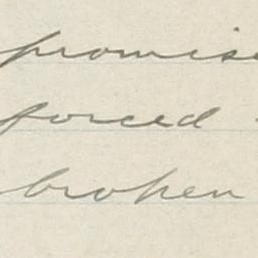 promise
forced
broken